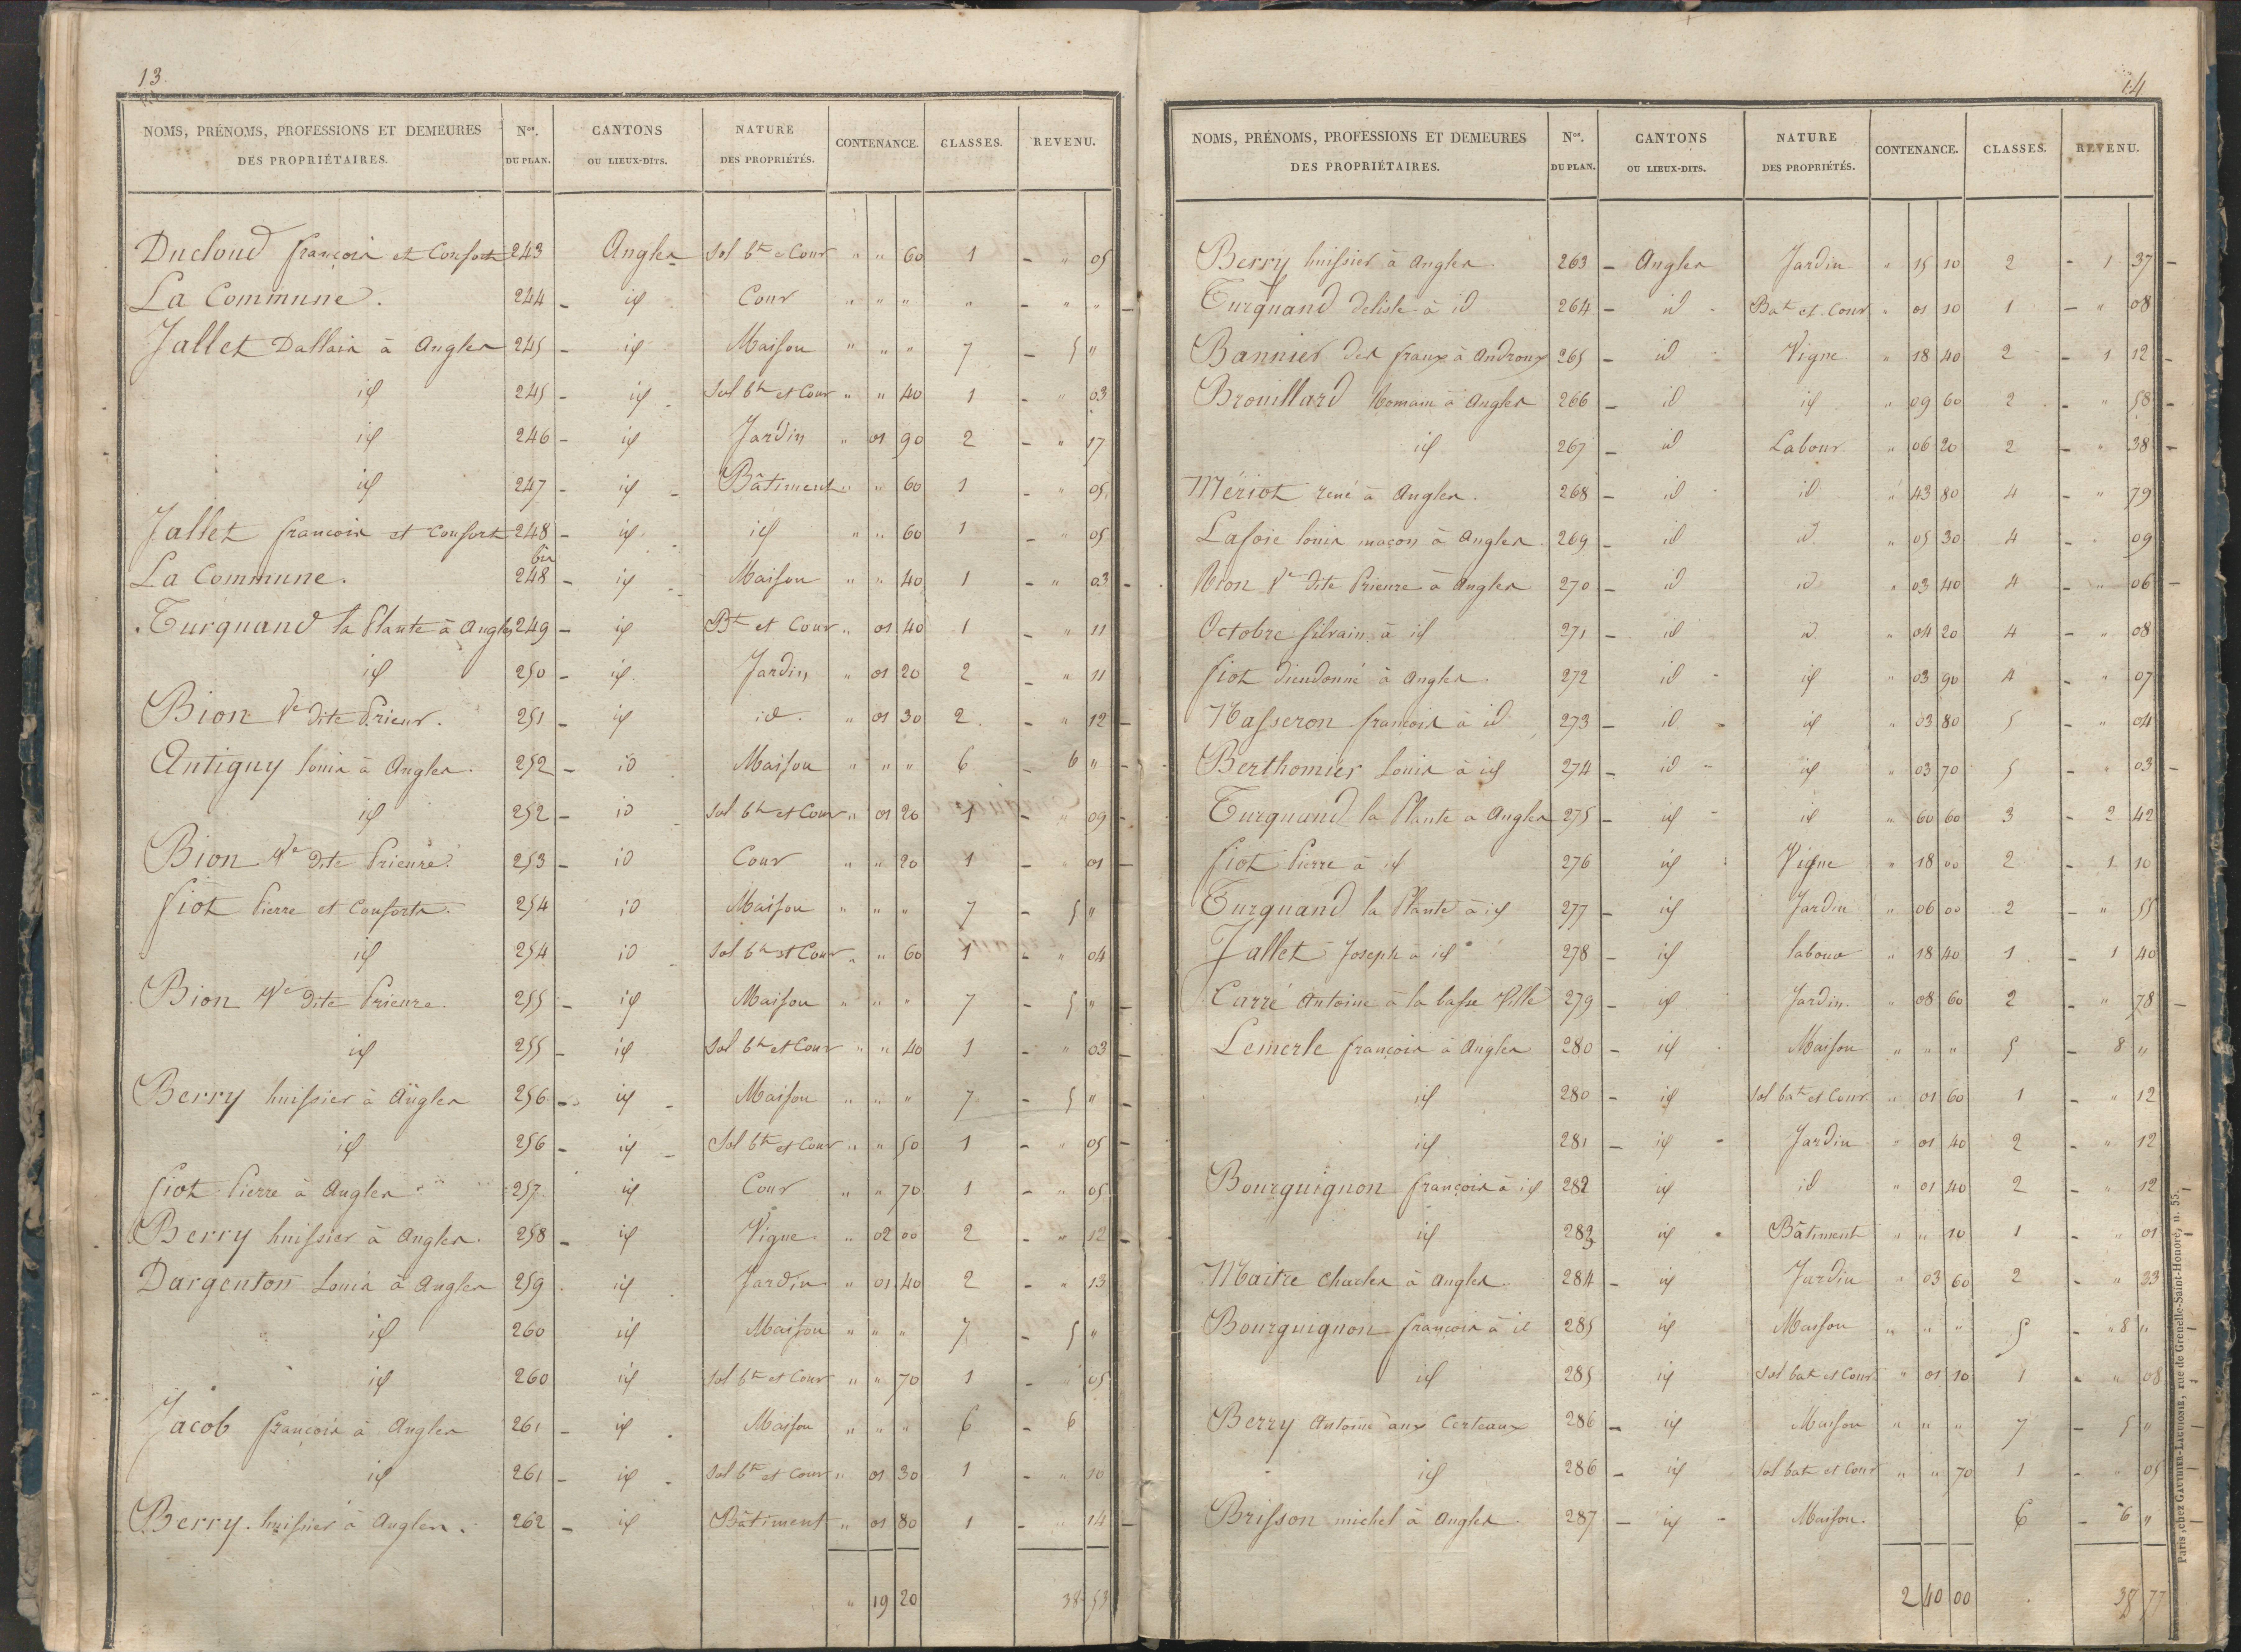 13
NOMS, PRÉNOMS, PROFESSIONS ET DEMEURES DES PROPRIÉTAIRES. Nos. DU PLAN. CANTONS OU LIEUX-DITS. NATURE DES PROPRIÉTÉS. CONTENANCE. CLASSES. REVENU.
Ducloud françois et Consorts 243 Angles Sol bt et Cour " " 60 1 - " 05
La Commune. 244 - id Cour " " " " - " "
Jallet Dallais à Angles 245 - id Maison " " " 7 - 5 "
id 245 - id Sol bt et Cour " " 40 1 - " 03
id 246 - id Jardin " 01 90 2 - " 17
id 247 - id Bâtiment " " 60 1 - " 05
Jallet francois et Consort 248 - id id " " 60 1 - " 05
La Commune. 248 bis - id Maison " " 40 1 - " 03
Turquand la Plante à Angles 249 - id Bt et Cour " 01 40 1 - " 11
id 250 - id Jardin " 01 20 2 - " 11
Bion Ve dite Prieur. 251 - id id. " 01 30 2. - " 12
Antigny louis à Angles. 252 - id Maison " " " 6 - 6 "
id 252 - id Sol bt et Cour " 01 20 1 - " 09
Bion Ve dite Prieure. 253 - id Cour " " 20 1 - " 01
fiot Pierre et Consorts. 254 id Maison " " " 7 - 5 "
id 254 id Sol bt et Cour " " 60 1 - " 04
Bion Ve dite Prieure. 255 - id Maison " " " 7 - 5 "
id 255 - id Sol bt et Cour " " 40 1 - " 03
Berry huissier à Angles 256 - id Maison " " " 7 - 5 "
id 256 - id Sol bt et Cour " " 50 1 - " 05
fiot Pierre à Angles 257 id Cour " " 70 1 - " 05
Berry huissier à Angles. 258 - id Vigne " 02 00 2 - " 12
Dargenton Louis à Angles 259 id Jardin " 01 40 2 - " 13
id 260 id Maison " " " 7 - 5 "
id 260 id Sol bt et Cour " " 70 1 - " 05
Jacob françois à Angles 261 - id Maison " " " 6 - 6
id 261 - id Sol bt et Cour " 01 30 1 - " 10
Berry. huissier à Angles. 262 - id Bâtiment " 01 80 1 - " 14
" 19 20 38 53
14
NOMS, PRÉNOMS, PROFESSIONS ET DEMEURES DES PROPRIÉTAIRES. Nos. DU PLAN. CANTONS OU LIEUX-DITS. NATURE DES PROPRIÉTÉS. CONTENANCE. CLASSES. REVENU.
Berry huissier à Angles. 263 - Angles Jardin " 15 10 2 - 1 37
Turquand delisle à id 264 - id Bat et Cour " 01 10 1 - " 08
Bannier des fraux à Androux 265 - id Vigne " 18 40 2 - 1 12
Brouillard Romain à Angles 266 - id id " 09 60 2 - " 58
id 267 - id Labour " 06 20 2 - " 38
Mériot rené à Angles. 268 - id id " 43 80 4 - " 79
Lafoie louis maçon à Angles. 269 - id id. " 05 30 4 - " 09
Bion Ve dite Prieure à Angles 270 - id id " 03 40 4 - " 06
Octobre silvain à id 271 - id id " 04 20 4 - " 08
fiot dieudonné à Angles. 272 id id " 03 90 4 - " 07
Masseron françois à id 273 - id id " 03 80 5 - " 04
Berthomier Louis à id 274 - id id " 03 70 5 - " 03
Turquand la Plante à Angles 275 - id id " 60 60 3 - 2 42
fiot Pierre à id 276 id Vigne " 18 00 2 - 1 10
Turquand la Plante à id 277 - id Jardin " 06 00 2 - " 55
Jallet Joseph à id 278 - id labour " 18 40 1 - 1 40
Carré Antoine à la basse Ville 279 - id Jardin. " 08 60 2 - " 78
Lemerle françois à Angles 280 - id Maison " " " 5 - 8 "
id 280 - id Sol bat et Cour " 01 60 1 - " 12
id 281 - id Jardin " 01 40 2 - " 12
Bourguignon françois à id 282 id id " 01 40 2 - " 12
id 283 id Bâtiment " " 10 1 - " 01
Maitre Charles à Angles. 284 - id Jardin " 03 60 2 - " 33
Bourguignon françois à id 285 id Maison " " " 5 - 8 "
id 285 id Sol bat et Cour " 01 10 1 - " 08
Berry Antoine aux Certeaux 286 - id Maison " " " 7 - 5 "
id 286 - id Sol bat et Cour " " 70 1 - " 05
Brisson michel à Angles. 287 - id Maison. 6 - 6 "
2 40 00 38 77
Paris, chez GAUTHIER-LAGUIONIE, rue de Grenelle-Saint-Honoré, n. 55.